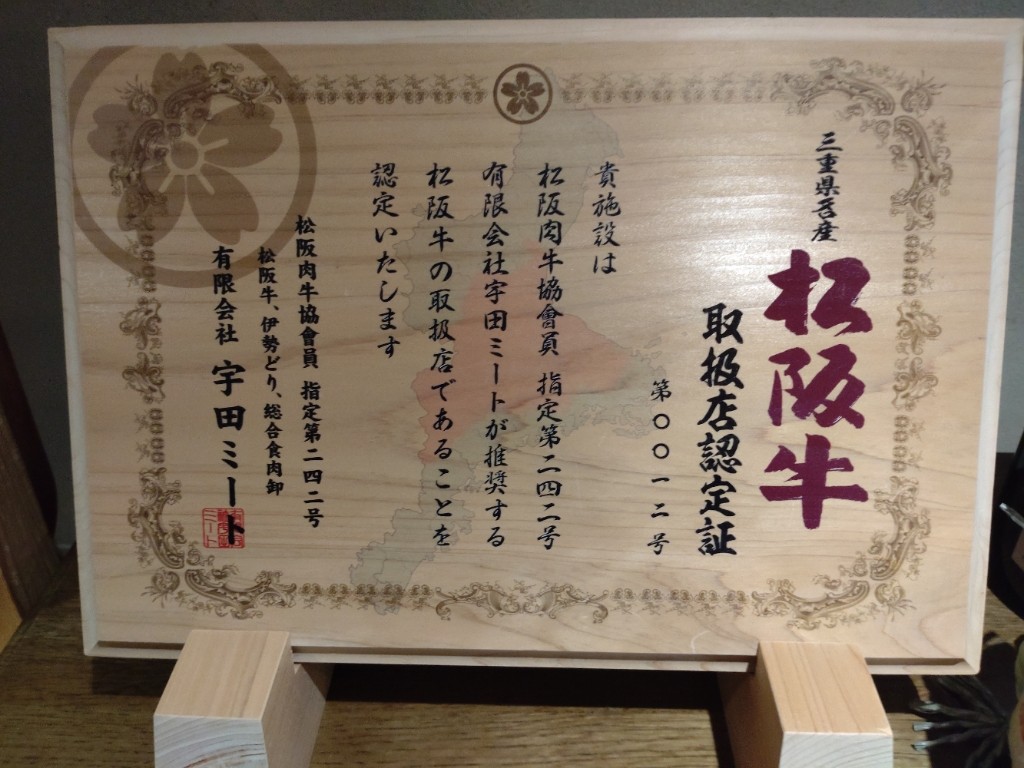 三重県吾産
松阪牛
取扱店認定証
第〇〇一二号
貴施設は
松阪肉牛協會員 指定第二四二号
有限会社宇田ミートが推奨する
松阪牛の取扱店であることを
認定いたします
松阪肉牛協會員 指定第二四二号
松阪牛、伊勢どり、総合食肉卸
有限会社 宇田ミート